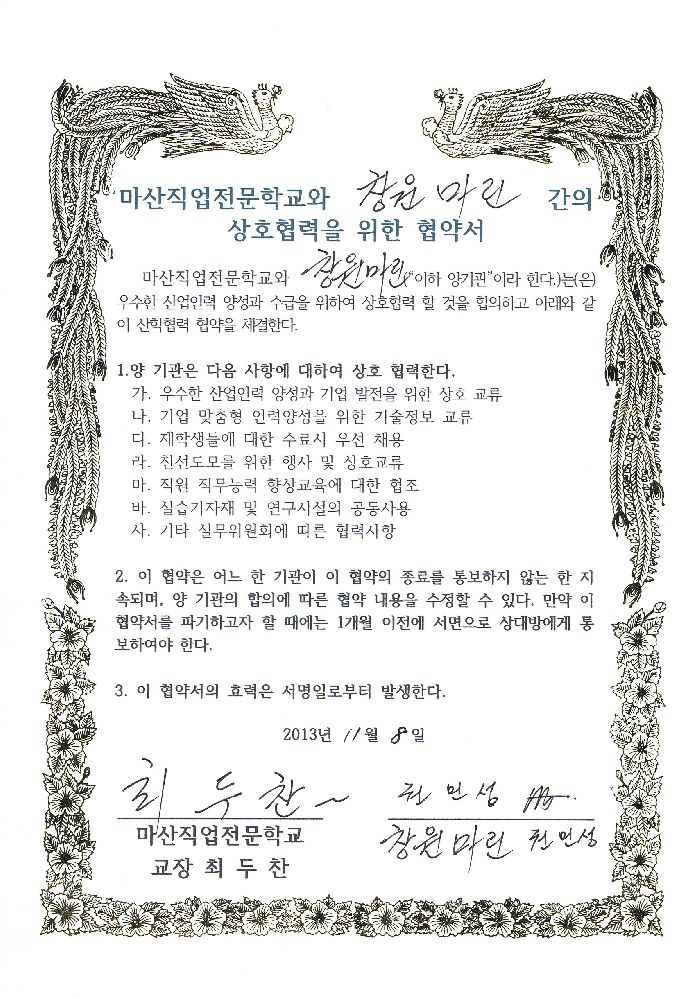 마산직업전문학교와 창원마린 간의
상호협력을 위한 협약서
마산직업전문학교와 창원마린("이하 양기관"이라 한다.)는(은)
우수한 산업인력 양성과 수급을 위하여 상호협력 할 것을 합의하고 아래와 같
이 산학협력 협약을 체결한다.
1.양 기관은 다음 사항에 대하여 상호 협력한다.
가. 우수한 산업인력 양성과 기업 발전을 위한 상호 교류
나. 기업 맞춤형 인력양성을 위한 기술정보 교류
다. 재학생들에 대한 수료시 우선 채용
라. 친선도모를 위한 행사 및 상호교류
마. 직원 직무능력 향상교육에 대한 협조
바. 실습기자재 및 연구시설의 공동사용
사. 기타 실무위원회에 따른 협력사항
2. 이 협약은 어느 한 기관이 이 협약의 종료를 통보하지 않는 한 지
속되며, 양 기관의 합의에 따른 협약 내용을 수정할 수 있다. 만약 이
협약서를 파기하고자 할 때에는 1개월 이전에 서면으로 상대방에게 통
보하여야 한다.
3. 이 협약서의 효력은 서명일로부터 발생한다.
2013년 11월 8일
최 두 찬 권 민 성
마산직업전문학교 창원마린 권 민 성
교장 최 두 찬